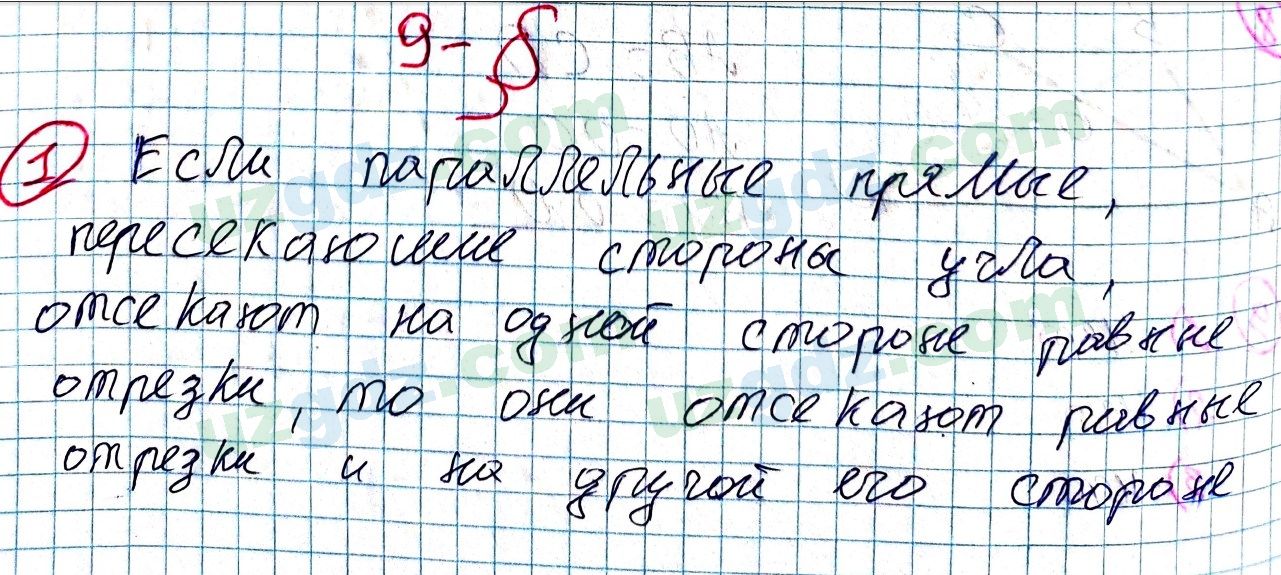 9-§
1 Если параллельные прямые,
пересекающие стороны угла,
отсекают на одной стороне равные
отрезки, то они отсекают равные
отрезки и на другой его стороне
uzgdz.com
uzgdz.com
uzgdz.com
uzgdz.com